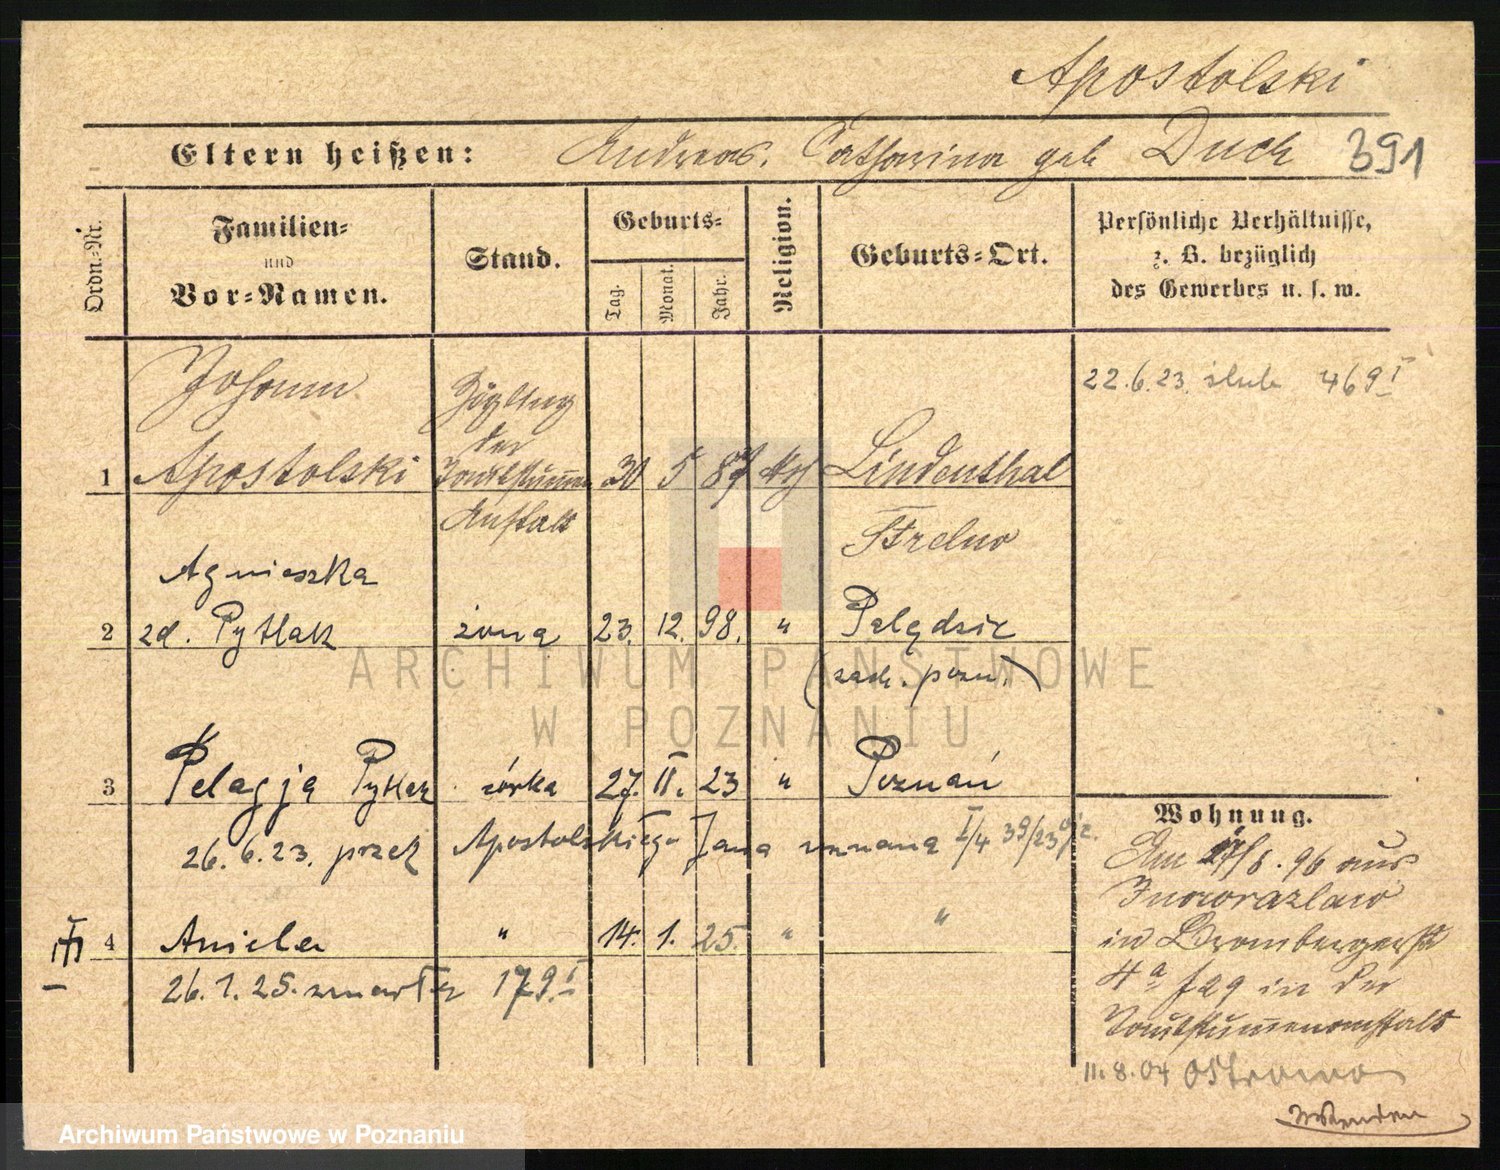 Apostolski
Eltern heißen: Andreas. Catharina geb Duck 391
Ordn.-Nr.
Familien-
und
Vor-Namen.
Stand.
Geburts-
Tag.
Monat.
Jahr.
Religion.
Geburts-Ort.
Persönliche Verhältnisse,
z. B. bezüglich
des Gewerbes u. s. w.
Johann
22.6.23. ślub 469 I
Zögling
der
1 Apostolski Taubstummen 30 5 87 Lindenthal
Anstalt
Strelno
Agnieszka
2 zd. Pytlak żona 23. 12. 98. " Palędzie
(zach. pozn.)
3 Pelagja Pytlak córka 27. II. 23 " Poznań
26.6.23. przez Apostolskiego Jana uznana I/4 39/23
Wohnung.
Am /6. 96 aus
Inowrazlaw
in Brombergerst
4a f 29 in der
Taubstummenanstalt
III 4 Aniela " 14. 1. 25. " "
26.1.25. zmarła 179 I
11.8.04 Ostrowo
ARCHIWUM PAŃSTWOWE
W POZNANIU
Archiwum Państwowe w Poznaniu